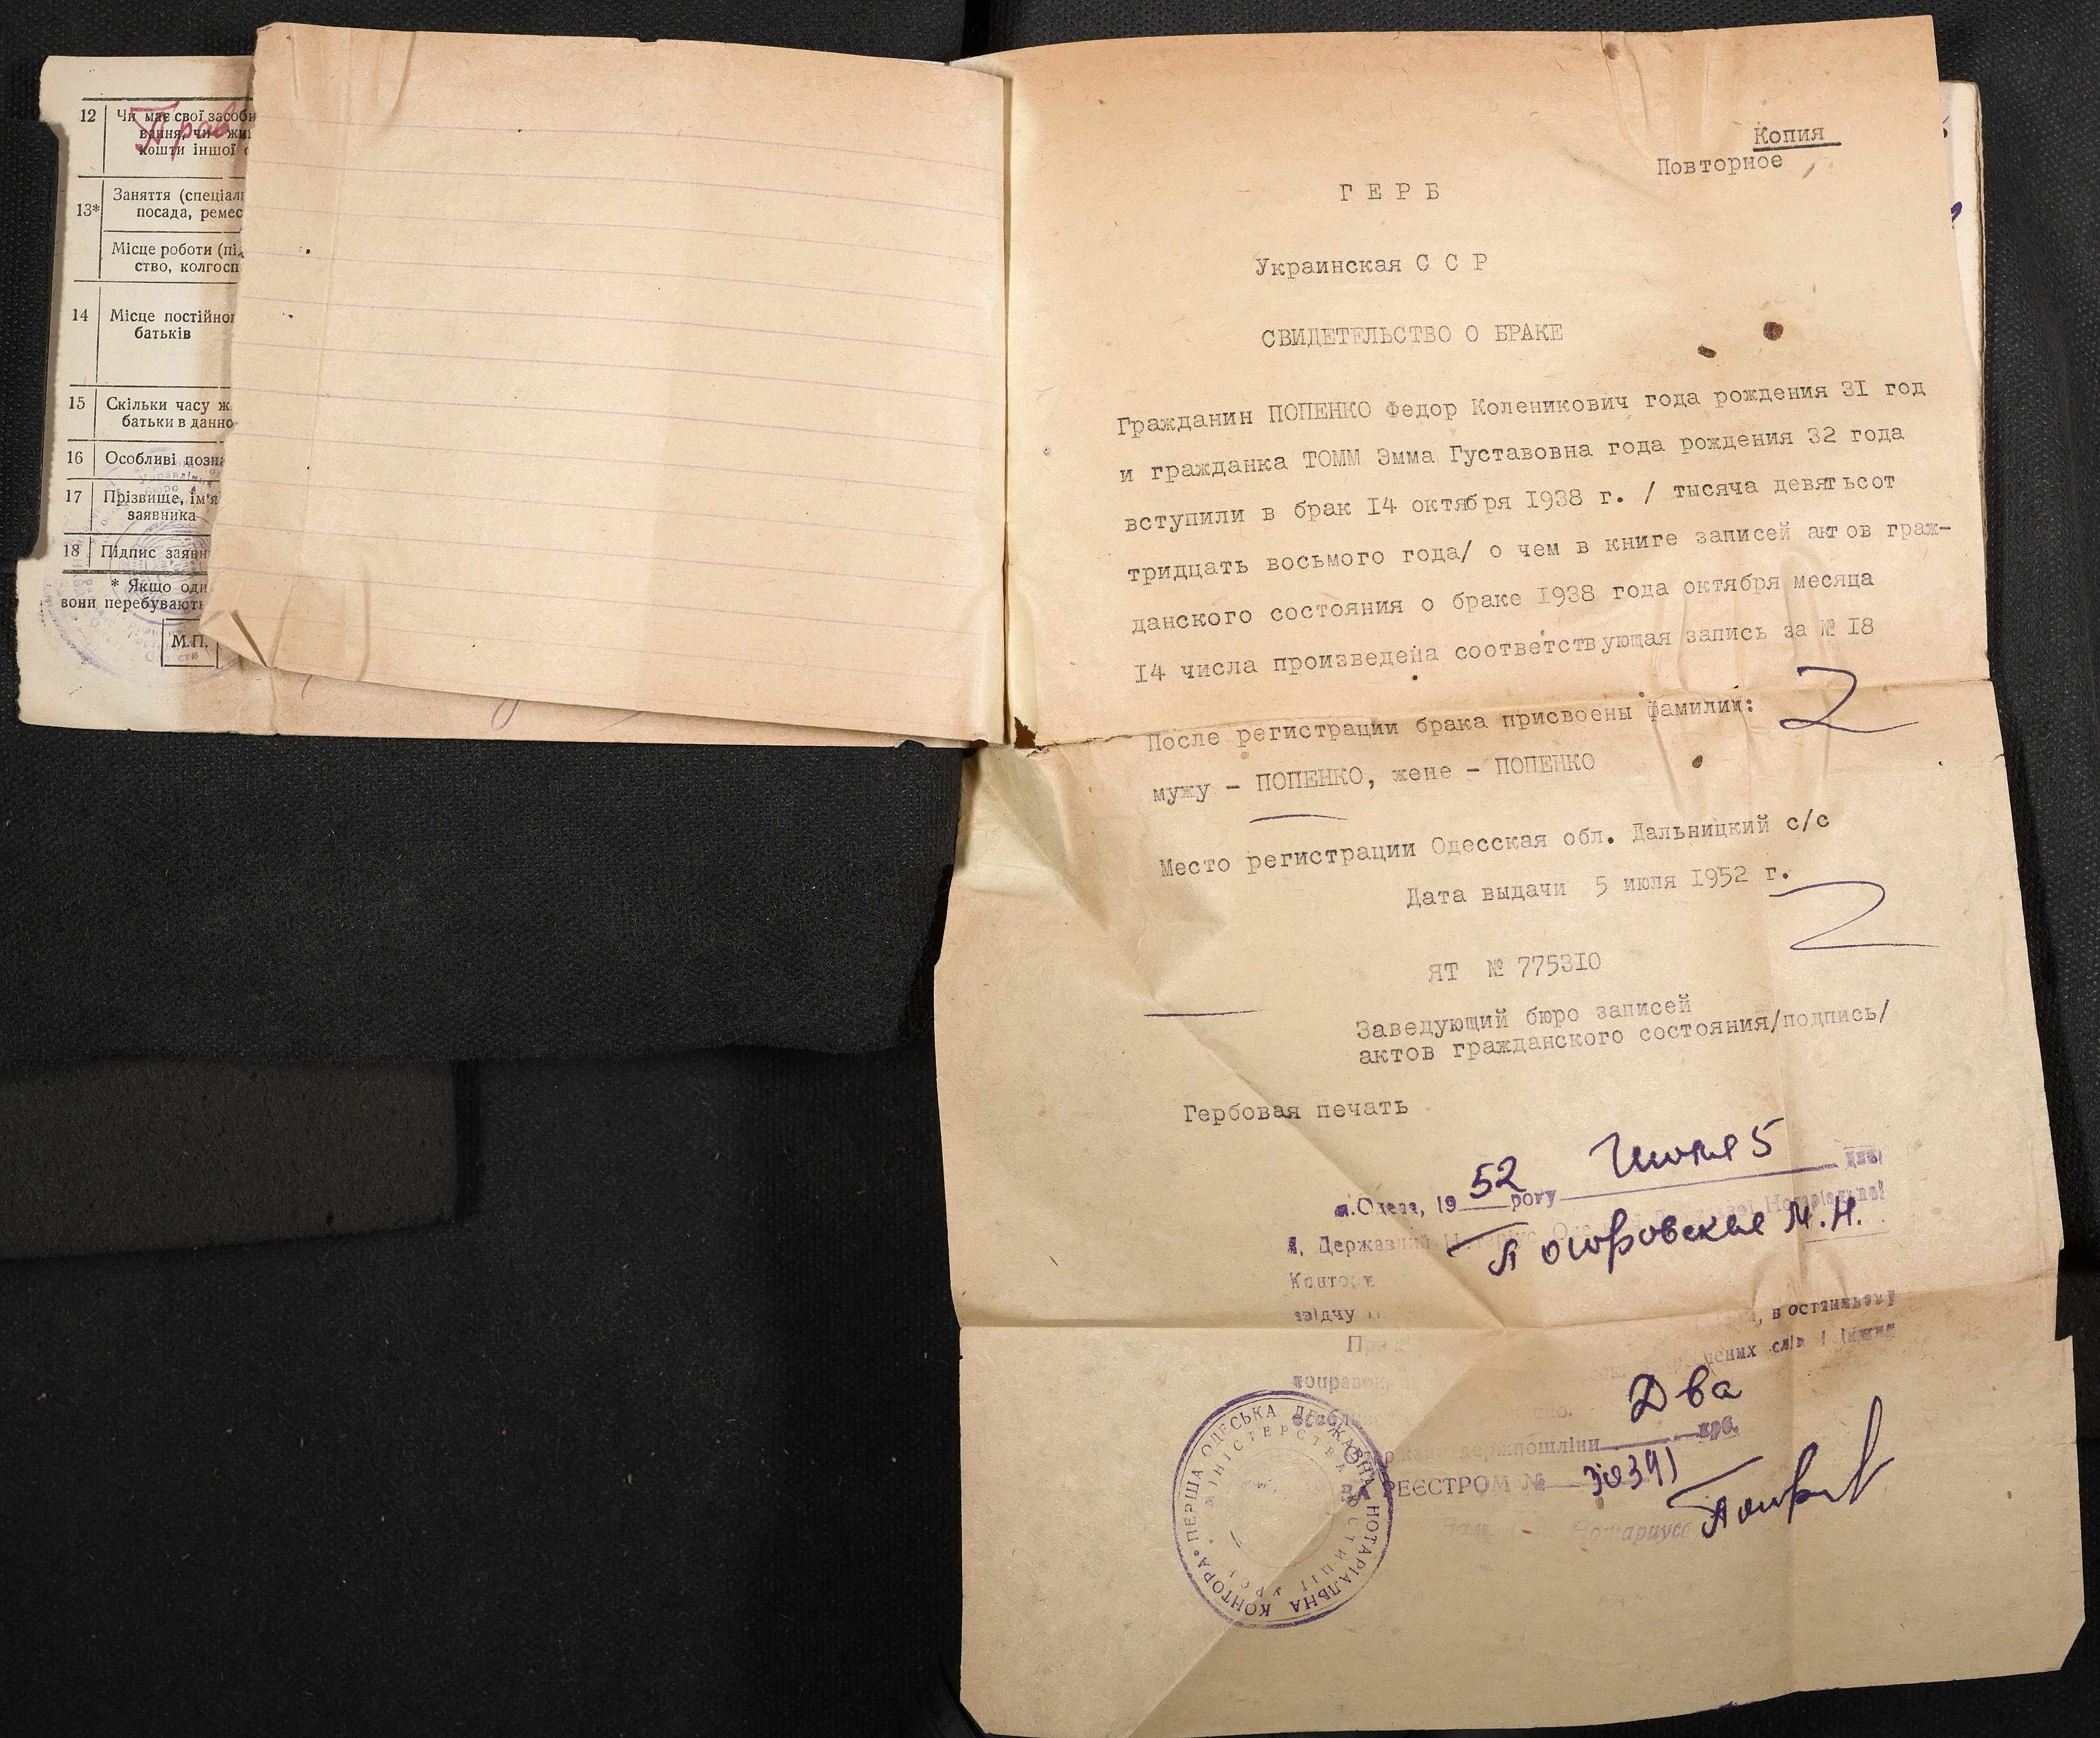 12 Чи має свої засоби
вання, чи жи
кошти іншої о
Прав
13* Заняття (спеціаль
посада, ремес
Місце роботи (під
ство, колгосп
14 Місце постійног
батьків
15 Скільки часу ж
батьки в данно
16 Особливі позна
17 Прізвище, ім'я
заявника
18 Підпис заявн
* Якщо оди
вони перебувають
М.П.
Копия
Повторное
ГЕРБ
Украинская С С Р
СВИДЕТЕЛЬСТВО О БРАКЕ
Гражданин ПОПЕНКО Федор Коленикович года рождения 31 год
и гражданка ТОММ Эмма Густавовна года рождения 32 года
вступили в брак 14 октября 1938 г. / тысяча девятьсот
тридцать восьмого года/ о чем в книге записей актов граж-
данского состояния о браке 1938 года октября месяца
14 числа произведена соответствующая запись за № 18
После регистрации брака присвоены фамилии:
мужу - ПОПЕНКО, жене - ПОПЕНКО
Место регистрации Одесская обл. Дальницкий с/с
Дата выдачи 5 июля 1952 г.
ЯТ № 775310
Заведующий бюро записей
актов гражданского состояния/подпись/
Гербовая печать
м.Одеса, 1952 року Июля 5 дня
Я, Державний Нотаріус
М.Н.
Контори
свідчу
, в останньому
слів і інших
поправок
Два
держмита крб.
РЕЄСТРОМ №
Нотариус
ПЕРША ОДЕСЬКА ДЕРЖАВНА НОТАРІАЛЬНА КОНТОРА
МІНІСТЕРСТВА ЮСТИЦІЇ УРСР